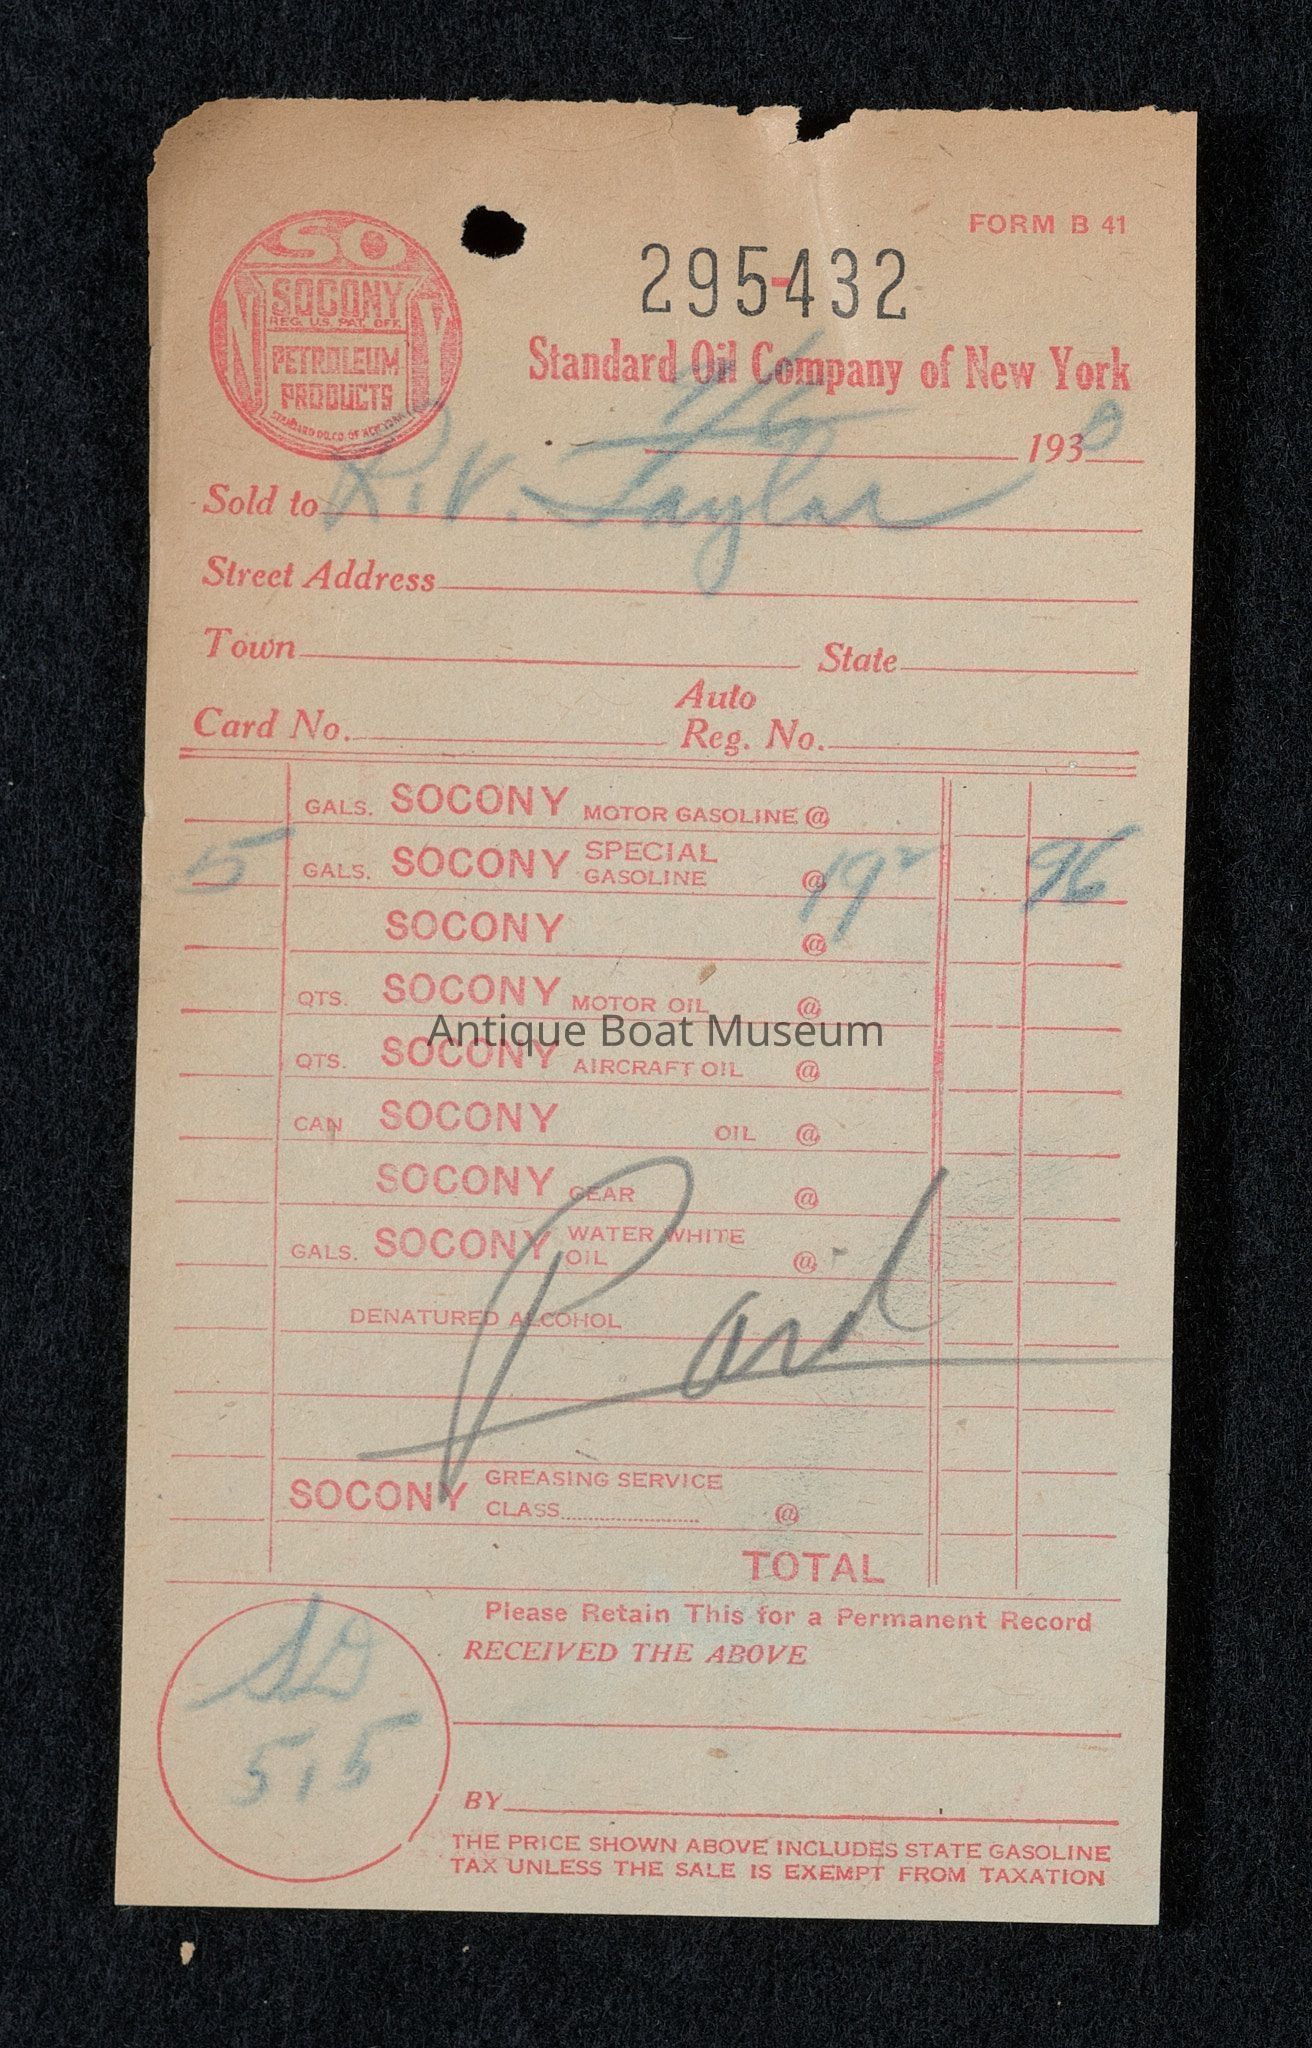 FORM B 41
295-432
SO
SOCONY
REG. U.S. PAT. OFF.
PETROLEUM
PRODUCTS
STANDARD OIL CO. OF NEW YORK
N Y
Standard Oil Company of New York
1930
Sold to R.V. Taylor
Street Address
Town State
Card No. Auto Reg. No.
GALS. SOCONY MOTOR GASOLINE @
5 GALS. SOCONY SPECIAL GASOLINE @ 19² 96
SOCONY @
QTS. SOCONY MOTOR OIL @
Antique Boat Museum
QTS. SOCONY AIRCRAFT OIL @
CAN SOCONY OIL @
SOCONY GEAR @
GALS. SOCONY WATER WHITE OIL @
DENATURED ALCOHOL
Paid
SOCONY GREASING SERVICE
CLASS @
TOTAL
Please Retain This for a Permanent Record
RECEIVED THE ABOVE
515
BY
THE PRICE SHOWN ABOVE INCLUDES STATE GASOLINE
TAX UNLESS THE SALE IS EXEMPT FROM TAXATION